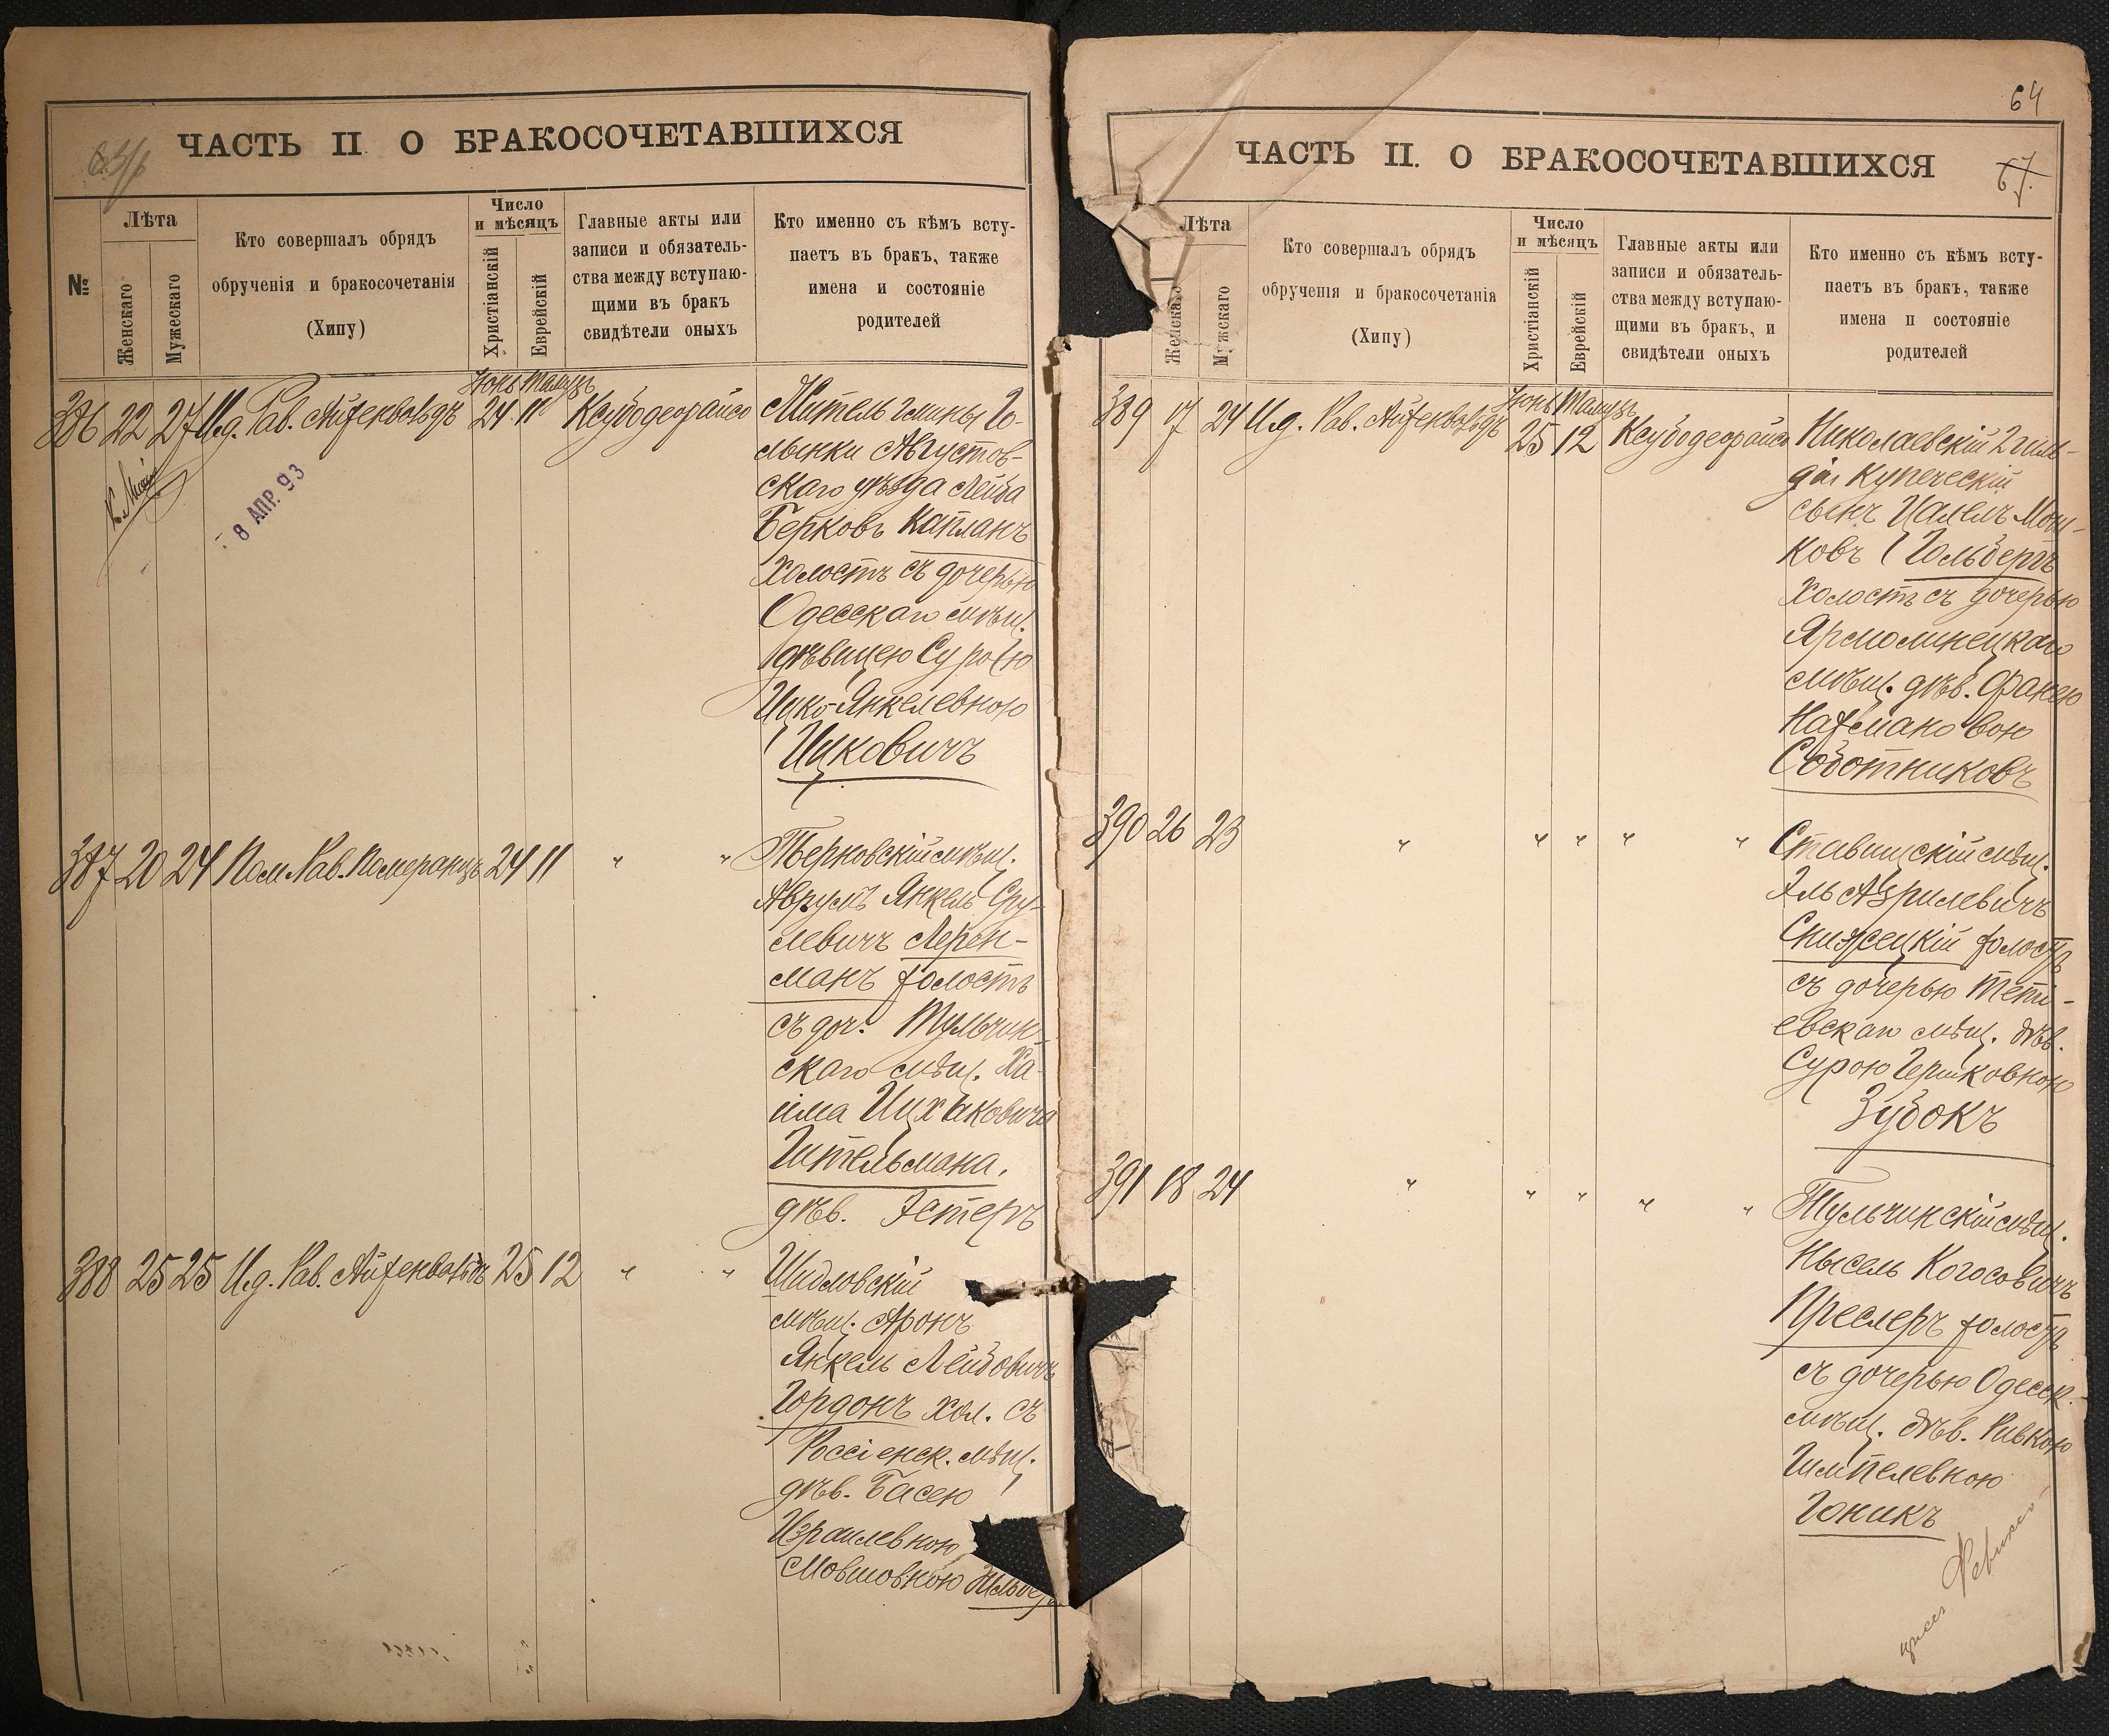 ЧАСТЬ II О БРАКОСОЧЕТАВШИХСЯ
№
Лѣта
Женскаго
Мужескаго
Кто совершалъ обрядъ
обрученія и бракосочетанія
(Хипу)
Число
и мѣсяцъ
Христіанскій
Еврейскій
Главные акты или
записи и обязатель-
ства между вступаю-
щими въ бракъ
свидѣтели оныхъ
Кто именно съ кѣмъ всту-
паетъ въ бракъ, также
имена и состояніе
родителей
Іюнь Тамузъ
386 22 27 И.д. Рав. Айзенвальдъ 24 11 Ксубодеорайсо
8 АПР. 93
Житель гмины Го-
лынки Августов-
скаго уѣзда Лейба
Берковъ Капланъ
холостъ съ дочерью
Одесскаго мѣщ.
дѣвицею Сурою
Ицко-Янкелевною
Ицковичъ
387 20 24 Пом. Рав. Померанцъ 24 11 " "
мѣщ.
Аврумъ Янкель Сру-
левичъ Лерен-
манъ холостъ
съ доч. Тульчин-
скаго мѣщ. Ха-
има Ицхаковича
Гительмана.
дѣв. Эстеръ
388 25 25 И.д. Рав. Айзенвальдъ 25 12 " "
Шидловскій
мѣщ. Аронъ
Янкель Лейбовичъ
Гордонъ хол. съ
Россіенск. мѣщ.
дѣв. Басею
Израилевною
Мовшовною
64
ЧАСТЬ II. О БРАКОСОЧЕТАВШИХСЯ
67.
Лѣта
Женскаго
Мужскаго
Кто совершалъ обрядъ
обрученія и бракосочетанія
(Хипу)
Число
и мѣсяцъ
Христіанскій
Еврейскій
Главные акты или
записи и обязатель-
ства между вступаю-
щими въ бракъ, и
свидѣтели оныхъ
Кто именно съ кѣмъ всту-
паетъ въ бракъ, также
имена и состояніе
родителей
Іюнь Тамузъ
389 17 24 И.д. Рав. Айзенвальдъ 25 12 Ксубодеорайсо
Николаевскій 2 гиль-
діи купеческій
сынъ Цалелъ Мош-
ковъ Гольбергъ
холостъ съ дочерью
Ярмолинецкаго
мѣщ. дѣв. Фанею
Нахмановою
Соботниковъ
390 26 23 " " " " "
Ставищскій мѣщ.
Эль Азрилевичъ
Снижецкій холостъ
съ дочерью Теті-
евскаго мѣщ. дѣв.
Сурою Гершковною
Зубокъ
391 18 24 " " " " "
Тульчинскій мѣщ.
Нысель Когосовичъ
Преслеръ холостъ
съ дочерью Одесск.
мѣщ. дѣв. Ривкою
Гимпелевною
Гоникъ